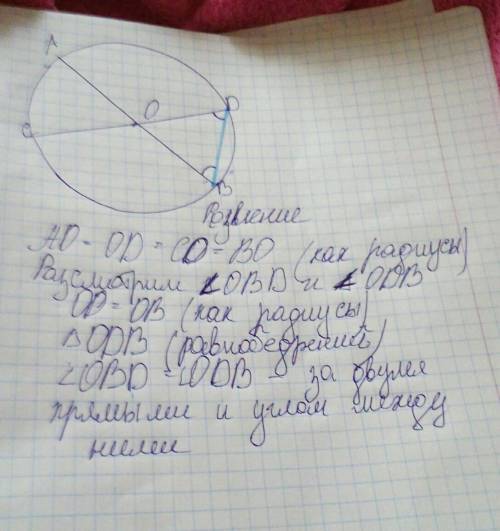 A
O
D
C
B
Решение
AO = OD = CO = BO (как радиусы)
Рассмотрим ∠OBD и ∠ODB
OD = OB (как радиусы)
△ODB (равнобедрений)
∠OBD = ∠ODB - за двумя
прямыми и углом между
ними